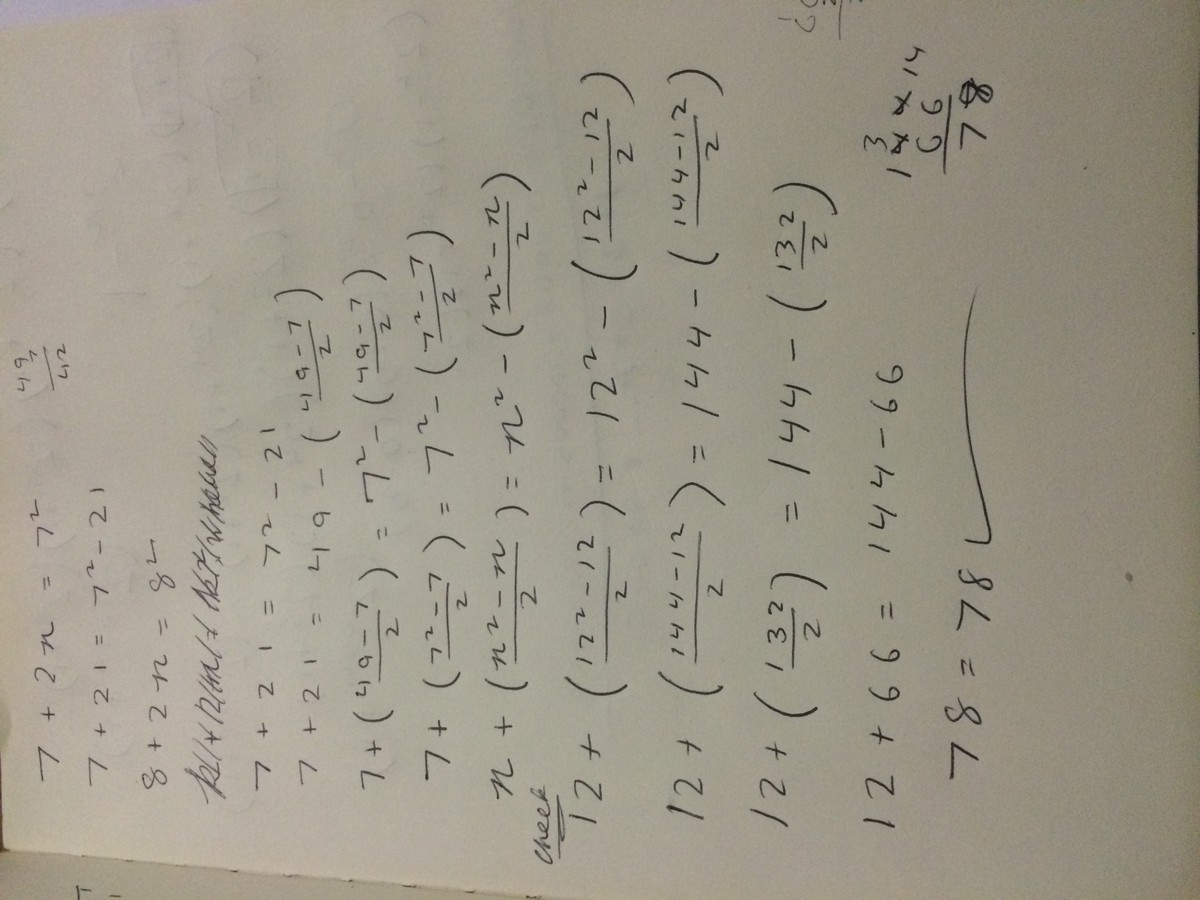 7 + 2n = 7²
49
7
42
7 + 21 = 7² - 21
8 + 2n = 8²
7 + 21 = 7² - 21
7 + 21 = 49 - (49-7/2)
7 + (49-7/2) = 7² - (49-7/2)
7 + (7²-7/2) = 7² - (7²-7/2)
n + (n²-n/2) = n² - (n²-n/2)
check
12 + (12²-12/2) = 12² - (12²-12/2)
12 + (144-12/2) = 144 - (144-12/2)
12 + (132/2) = 144 - (132/2)
12 + 66 = 144 - 66
3 14
144
66
78
78 = 78 ✓